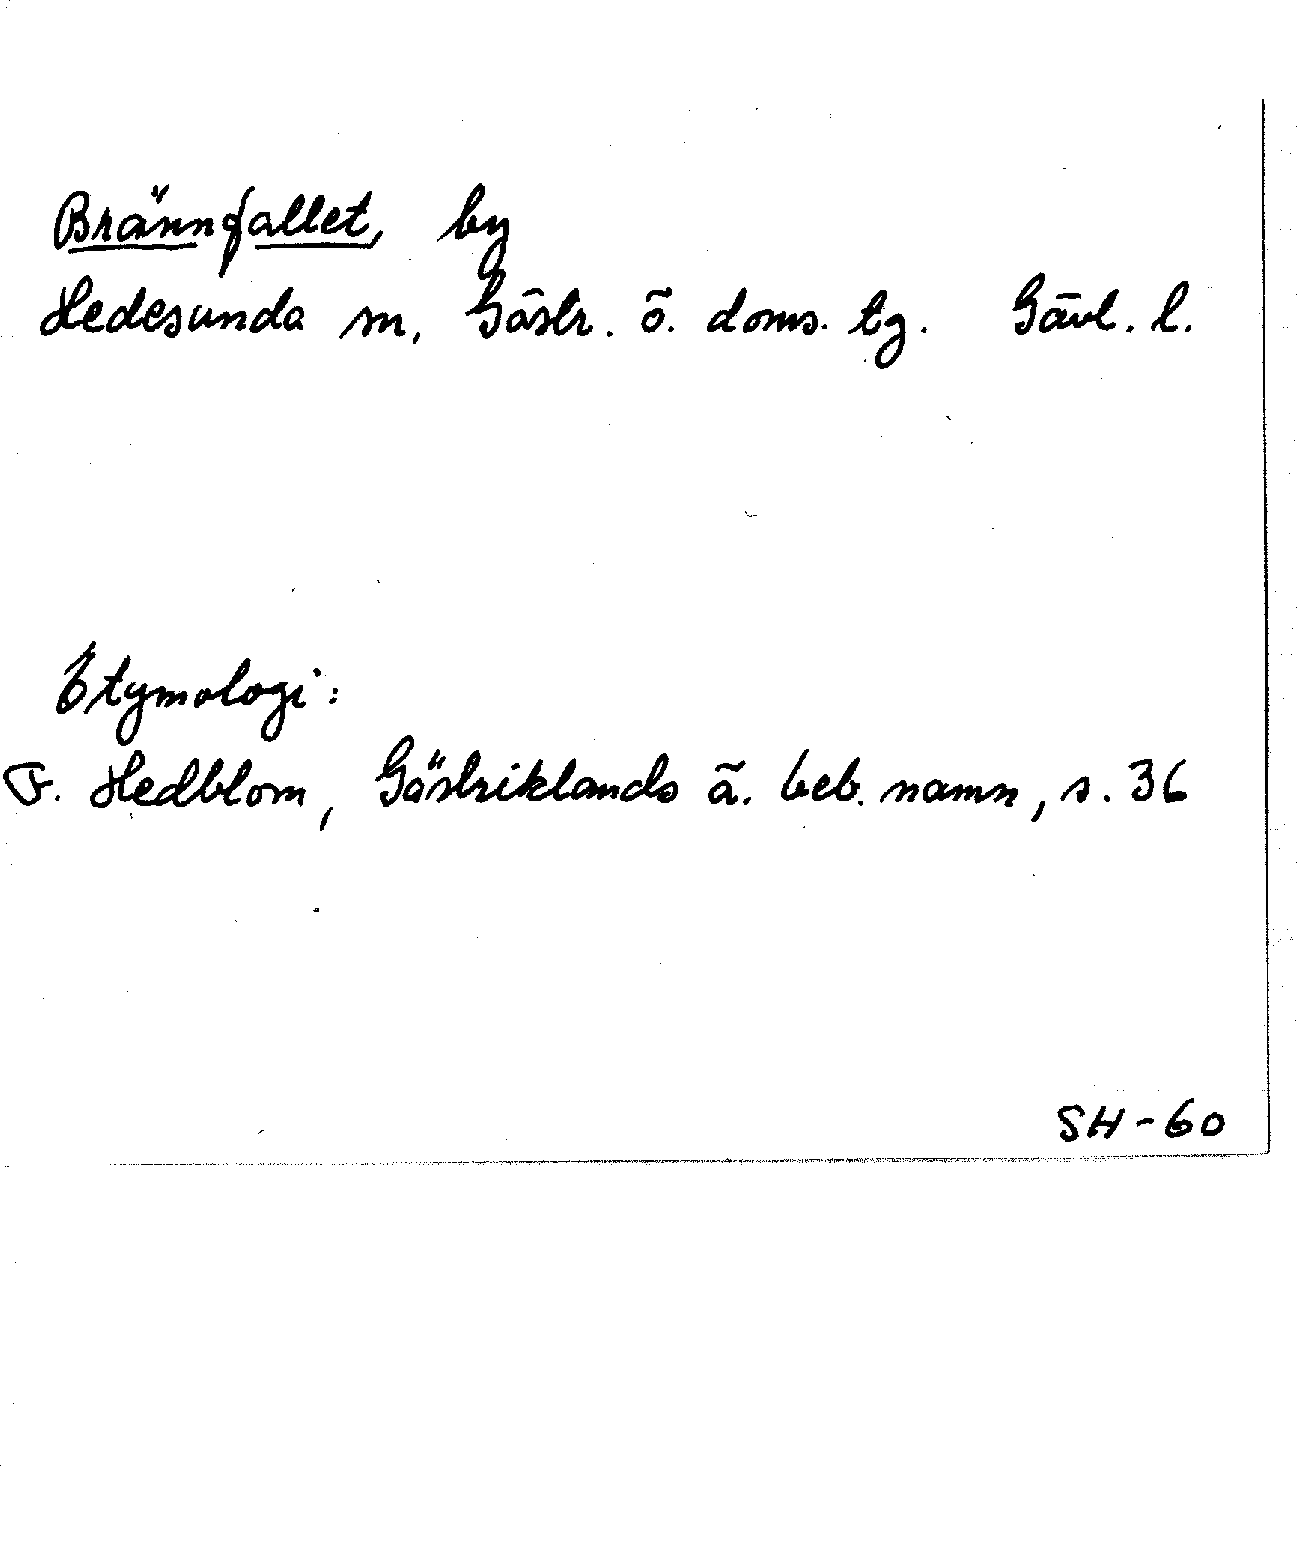 Brännfallet, by
Hedesunda sn, Gästr. ö. doms. tg. Gävl. l.
Etymologi:
F. Hedblom, Gästriklands ä. beb. namn, s. 36
SH-60